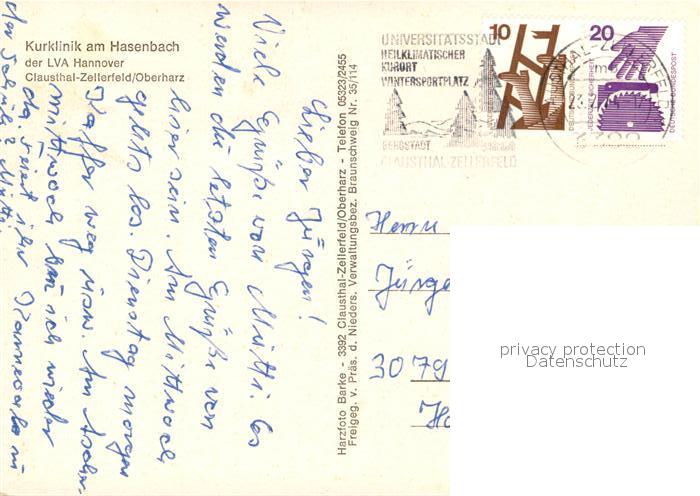 Kurklinik am Hasenbach
der LVA Hannover
Clausthal-Zellerfeld/Oberharz
Lieber Jürgen!
Viele Grüße von Mutti. Es
werden die letzten Grüße von
hier sein. Am Mittwoch
gehts los. Dienstag morgen
Koffer weg usw. Am Ascher-
mittwoch bin ich wieder
da. Feiert ihr Karneval in
der Schule? Mutti
Harzfoto Barke - 3392 Clausthal-Zellerfeld/Oberharz - Telefon 05323/2455
Freigeg. v. Präs. d. Nieders. Verwaltungsbez. Braunschweig Nr. 35/114
UNIVERSITÄTSSTADT
HEILKLIMATISCHER
KURORT
WINTERSPORTPLATZ
BERGSTADT
CLAUSTHAL-ZELLERFELD
10
20
JEDERZEIT SICHERHEIT
DEUTSCHE BUNDESPOST
Herrn
Jürge
3079
privacy protection
Datenschutz